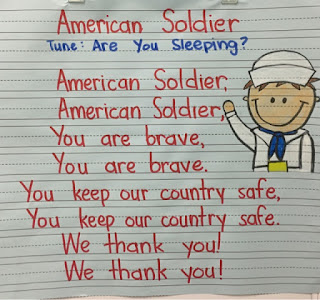 American Soldier
Tune: Are You Sleeping?
American Soldier,
American Soldier,
You are brave,
You are brave.
You keep our country safe,
You keep our country safe.
We thank you!
We thank you!